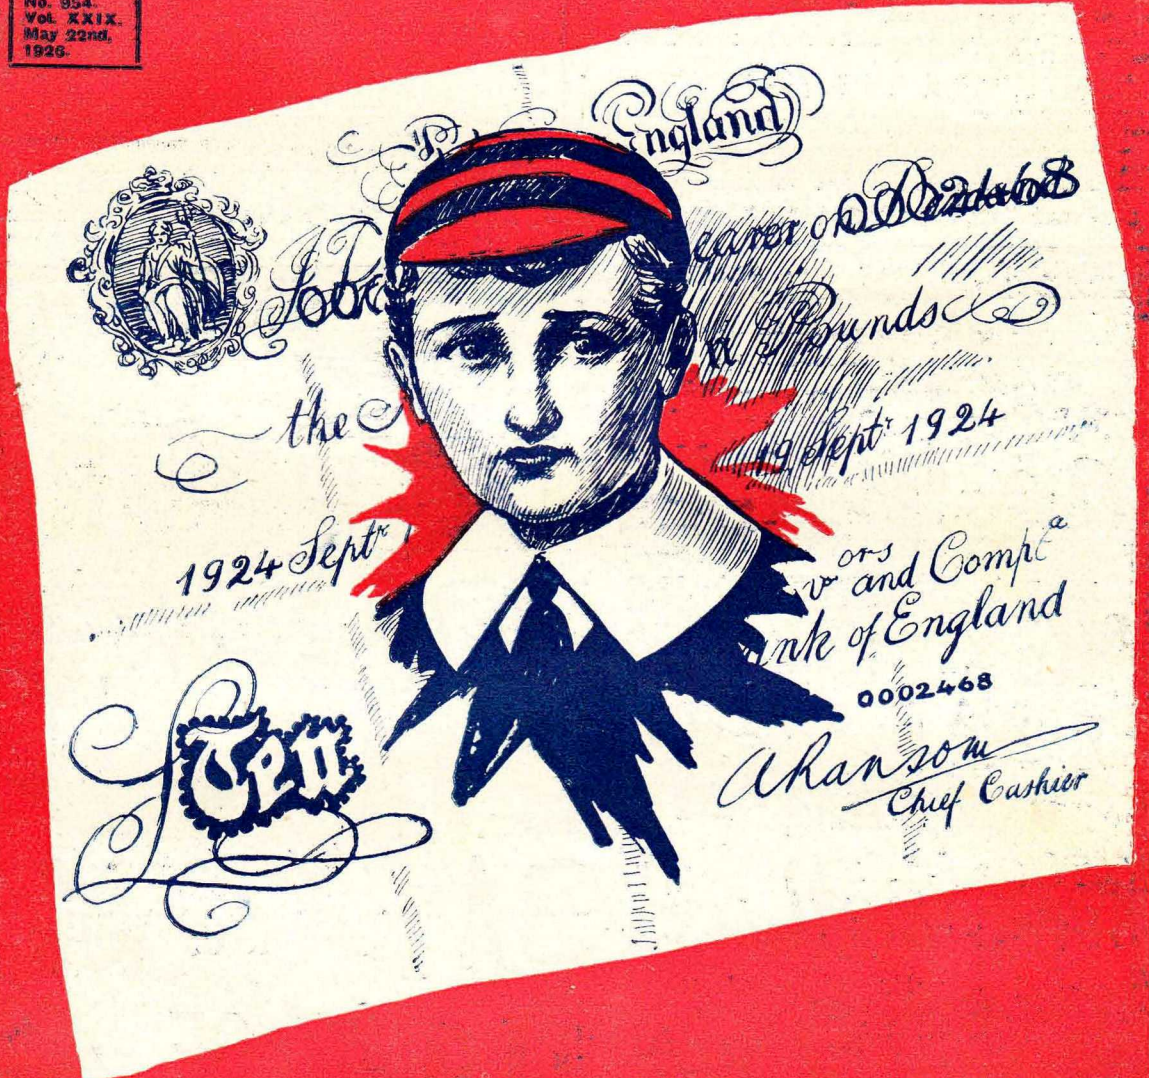 No. 954.
Vol. XXIX.
May 22nd,
1926.
England
earer on
Pounds
the
19 Septr 1924
1924 Septr
ors
vr and Compa
nk of England
0002468
£Ten
A Ransom
Chief Cashier